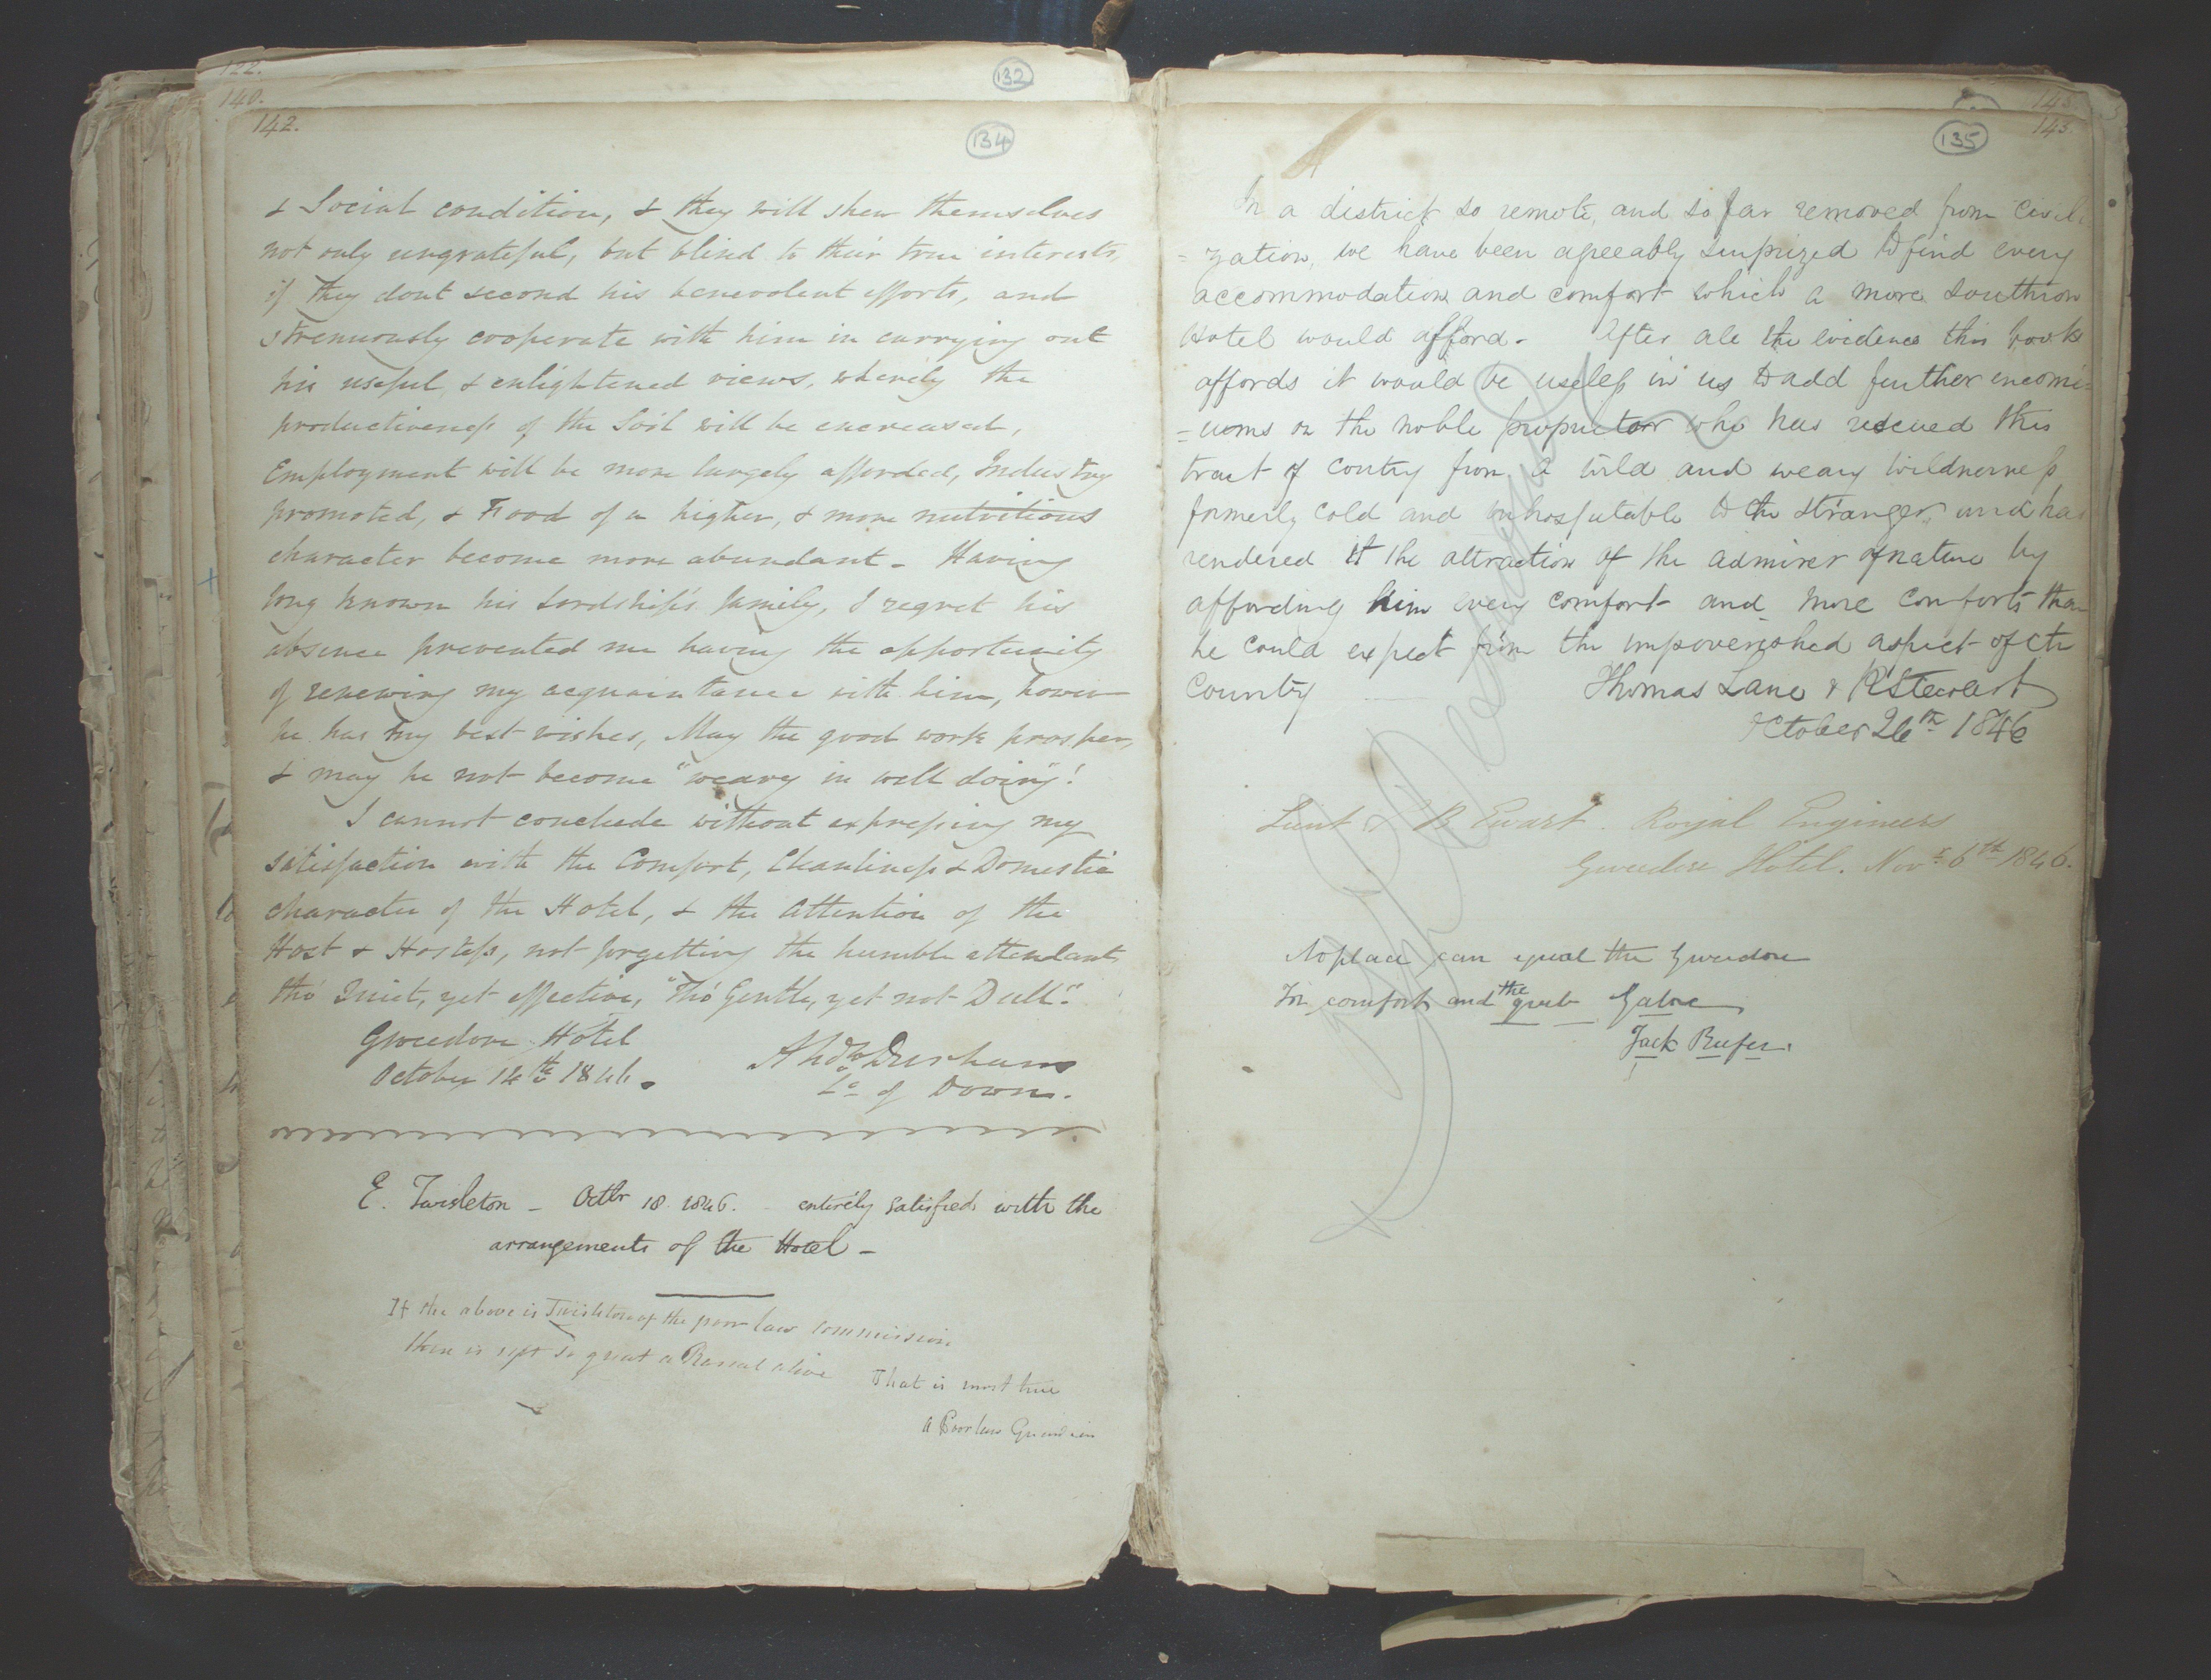 122.
132
140.
142.
134
& Social condition, & they will shew themselves
not only ungrateful, but blind to their true interests,
if they dont second his benevolent efforts, and
strenuously cooperate with him in carrying out
his useful & enlightened views, whereby the
productiveness of the Soil will be encreased,
Employment will be more largely afforded, Industry
promoted, & Food of a higher, & more nutritious
character become more abundant - Having
long known his Lordship's family, I regret his
absence prevented me having the opportunity
of renewing my acquaintance with him, however
he has my best wishes, May the good work prosper,
& may he not become "weary in well doing"!
I cannot conclude without expressing my
satisfaction with the Comfort, Cleanliness & Domestic
character of the Hotel, & the attention of the
Host & Hostess, not forgetting the humble attendants
tho' Quiet, yet effective, "Tho' Gentle, yet not Dull".
Gweedore Hotel
October 14th 1846.
Durham
Co of Down.
E. Twisleton - Octbr 18. 1846. - entirely satisfied with the
arrangements of the Hotel -
If the above is Twisleton of the poor law commission
there is not so great a Rascal alive
That is most true
A Poor law Guardian
143.
135
In a district so remote, and so far removed from Civili
= zation, we have been agreeably surprized to find every
accommodation and comfort which a more southron
Hotel would afford - After all the evidence this book
affords it would be useless in us to add further encomi=
= ums on the noble proprietor who has rescued this
tract of Contry from a wild and weary wildnerness
formerly cold and inhospitable to the stranger, and has
rendered it the attraction of the admirer of nature by
affording him every comfort and more comforts than
he could expect from the impoverished aspect of the
Country
Thomas Lane & R Stewart
October 26th 1846
Lieut & B Ewart. Royal Engineers
Gweedore Hotel. Novr 6th 1846.
No place can equal the Gweedore
In comfort and the grub Galore
Jack Reefer.